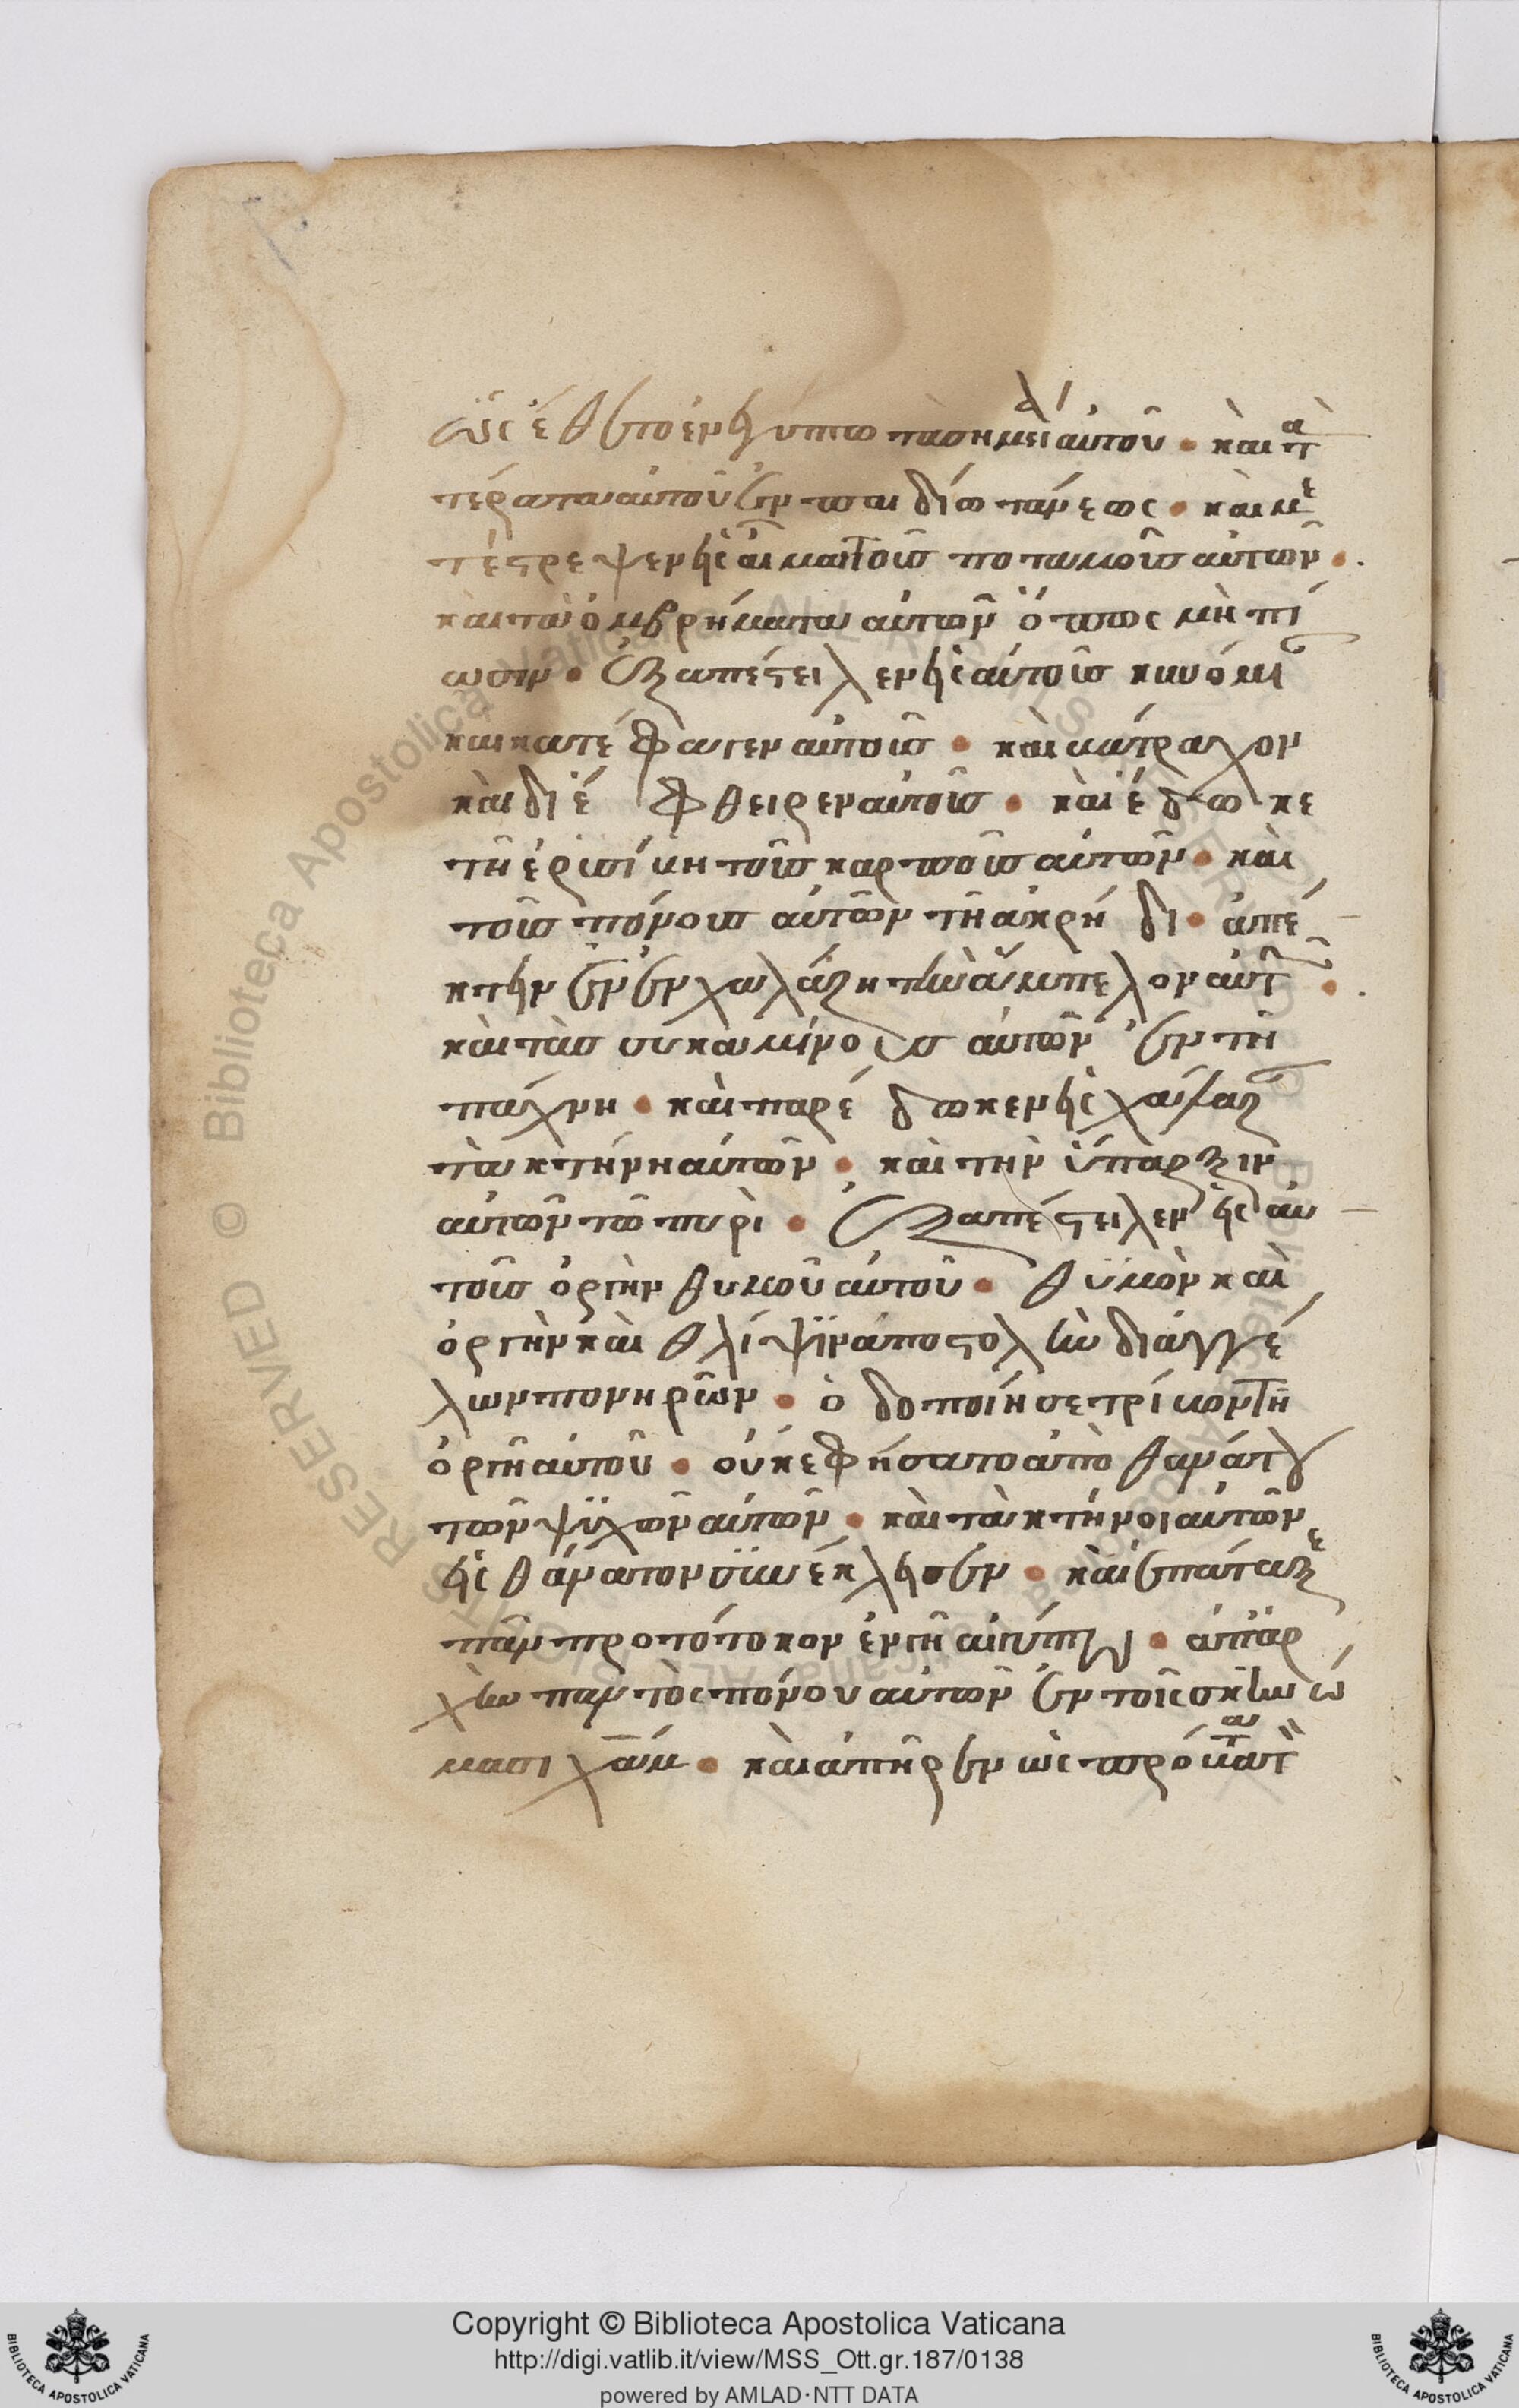 ὡς ἔθετο ἐν αἰγύπτω τὰ σημεῖα αὐτοῦ · καὶ τὰ
τέρατα αὐτοῦ ἐν παιδίω τάνεως · καὶ με
τέστρεψεν εἰς αἷμα τοὺς ποταμοὺς αὐτῶν ·
καὶ τὰ ὀμβρήματα αὐτῶν ὅπως μὴ πί
ωσιν · ἐξαπέστειλεν εἰς αὐτοὺς κυνόμυιαν
καὶ κατέφαγεν αὐτοὺς · καὶ βάτραχον
καὶ διέφθειρεν αὐτοὺς · καὶ ἔδωκε
τῆ ἐρισίβη τοὺς καρποὺς αὐτῶν · καὶ
τοὺς πόνους αὐτῶν τῆ ἀκρήδι · ἀπέ
κτεινεν ἐν χαλάζη τὴν ἄμπελον αὐτῶν ·
καὶ τὰς συκαμίνους αὐτῶν ἐν τῆ
πάχνη · καὶ παρέδωκεν εἰς χάλαζαν
τὰ κτήνη αὐτῶν · καὶ τὴν ὕπαρξιν
αὐτῶν τῶ πυρὶ · ἐξαπέστειλεν εἰς αὐ
τοὺς ὀργὴν θυμοῦ αὐτοῦ · θυμὸν καὶ
ὀργὴν καὶ θλίψιν ἀποστολὴν δι' ἀγγέ
λων πονηρῶν · ὁδοποίησε τρίβον τῆ
ὀργῆ αὐτοῦ · οὐκ ἐφήσατο ἀπὸ θανάτου
τῶν ψυχῶν αὐτῶν · καὶ τὰ κτήνοι αὐτῶν
εἰς θάνατον συνέκλεισεν · καὶ ἐπάταξε
πᾶν προτότοκον ἐν γῆ αἰγύπτου · ἀπαρ
χὴν παντὸς πόνου αὐτῶν ἐν τοῖς σκηνώ
μασι χάμ · καὶ ἀπῆρεν ὡς πρόβατα